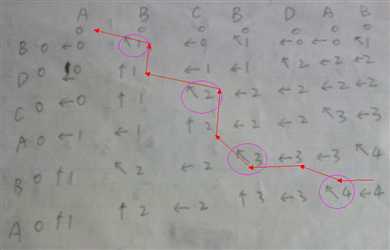 A B C B D A B
0 0 0 0 0 0 0
B 0 ←0 ↖1 ←0 ↖1 ←0 ←0 ↖1
D 0 0 ↑1 ←1 ←1 ↖2 ←2 ←2
C 0 ←0 ↑1 ↖2 ←2 ←2 ←2 ←2
A 0 ←1 ←1 ↑2 ←2 ←2 ↖3 ←3
B 0 ↑1 ↖2 ←2 ↖3 ←3 ←3 ↖4
A 0 ↑1 ↑2 ←2 ↑3 ←3 ↖4 ←4